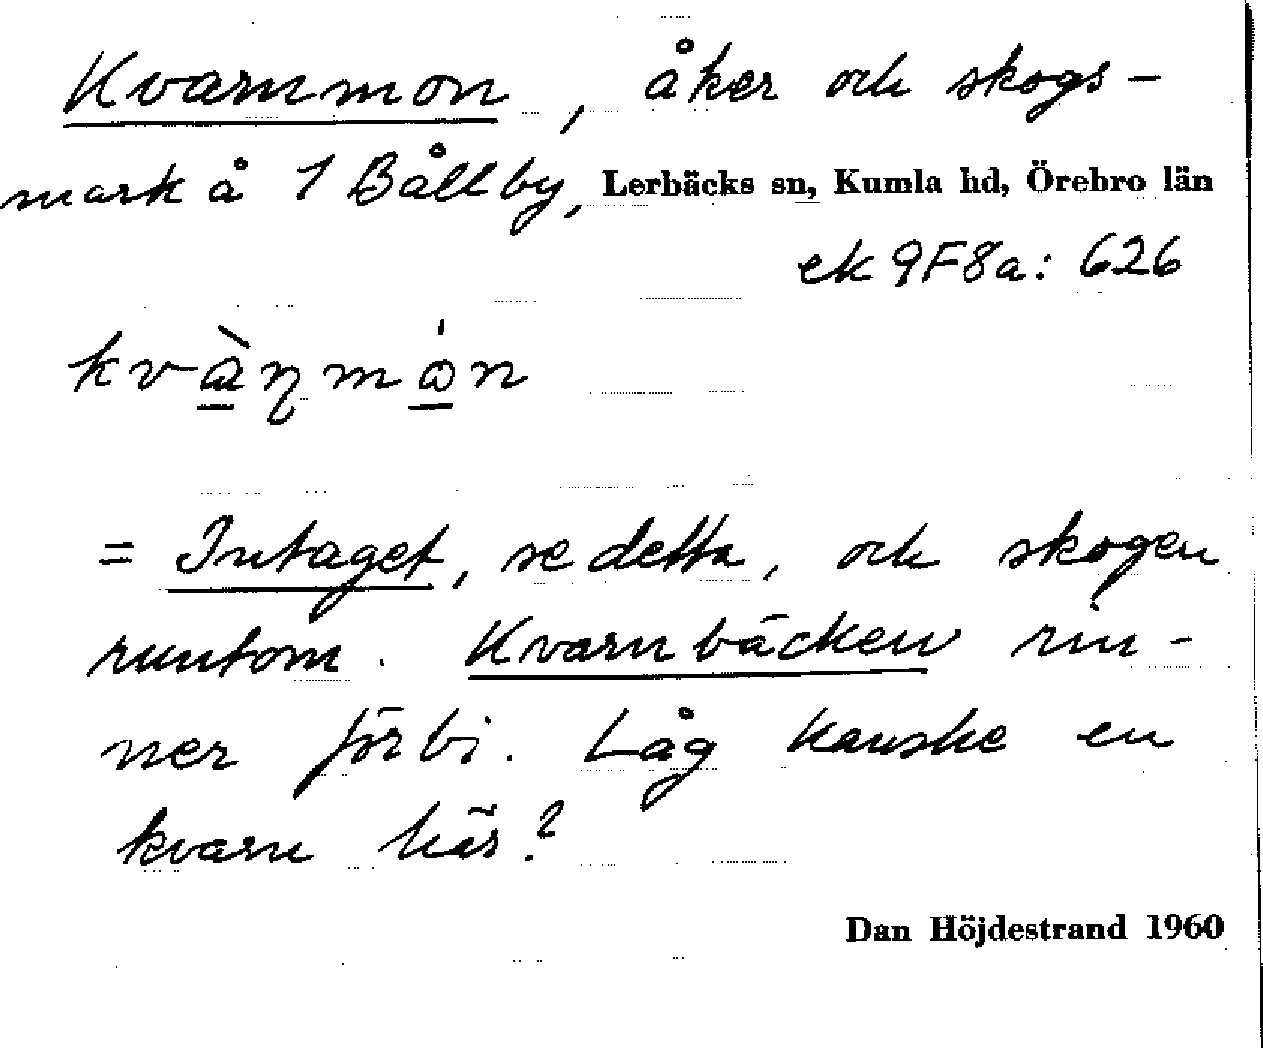 Kvarnmon, åker och skogs-
mark å 1 Bållby, Lerbäcks sn, Kumla hd, Örebro län
ek 9F8a: 626
kvàɳmón
= Intaget, se detta, och skogen
runtom. Kvarnbäcken rin-
ner förbi. Låg kanske en
kvarn här?
Dan Höjdestrand 1960